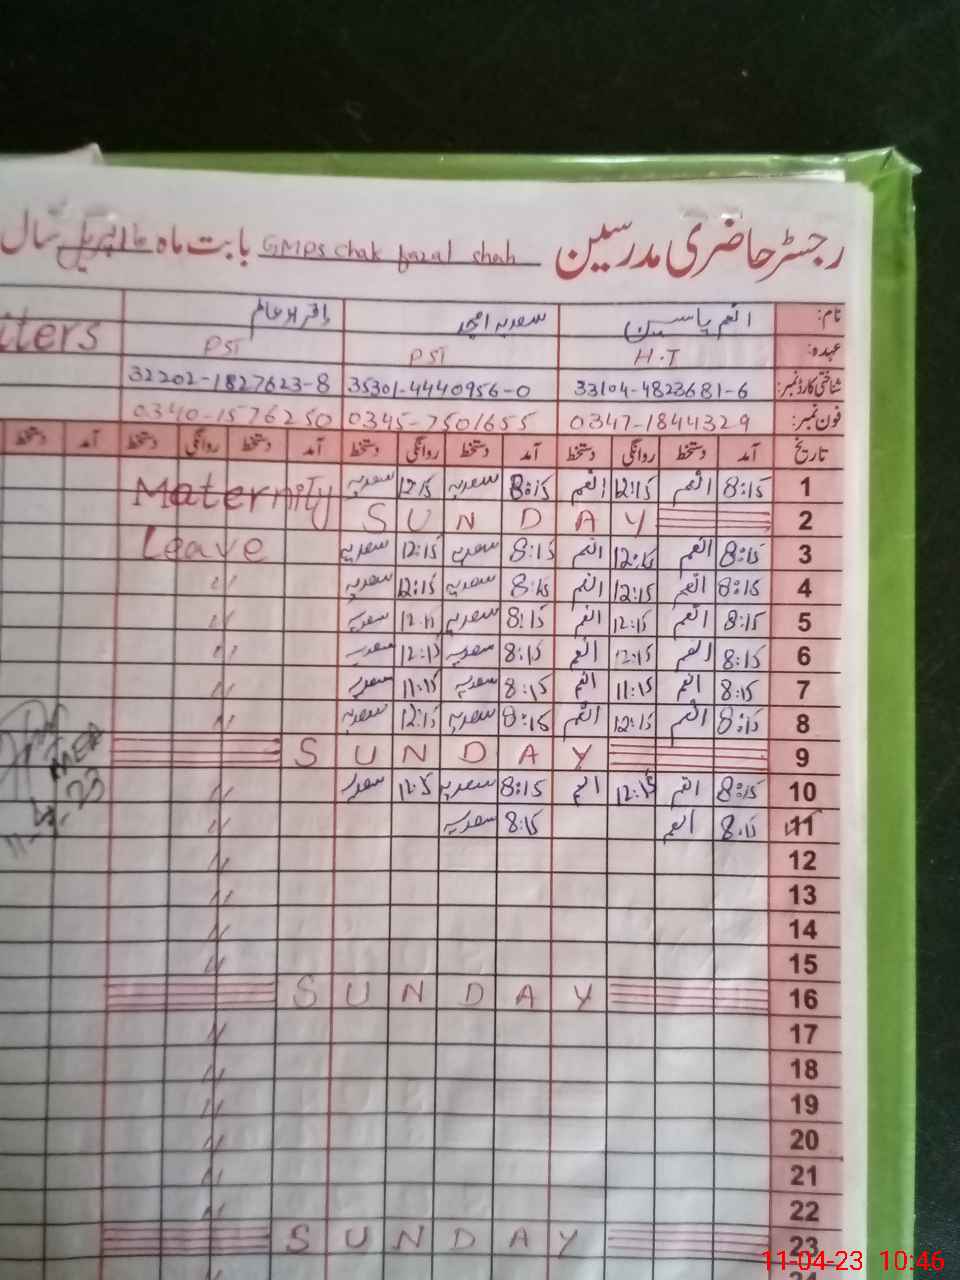 رجسٹر حاضری مدرسین GMPS chak fazal shah بابت ماہ اپریل سال
نام: انعم یاسین سعدیہ امجد
عہدہ: H.T PST PST iters
شناختی کارڈ نمبر: 33104-4823681-6 35301-4440956-0 32202-1827623-8
فون نمبر: 0347-1844329 0345-7501655 0340-1576250
تاریخ آمد دستخط روانگی دستخط آمد دستخط روانگی دستخط آمد دستخط روانگی دستخط آمد دستخط
1 8:15 انعم 12:15 انعم 8:15 سعدیہ 12:15 سعدیہ Maternity
2 SUNDAY
3 8:15 انعم 12:15 انعم 8:15 سعدیہ 12:15 سعدیہ Leave
4 8:15 انعم 12:15 انعم 8:15 سعدیہ 12:15 سعدیہ //
5 8:15 انعم 12:15 انعم 8:15 سعدیہ 12:15 سعدیہ //
6 8:15 انعم 12:15 انعم 8:15 سعدیہ 12:15 سعدیہ //
7 8:15 انعم 11:15 انعم 8:15 سعدیہ 11:15 سعدیہ //
8 8:15 انعم 12:15 انعم 8:15 سعدیہ 12:15 سعدیہ //
9 SUNDAY
10 8:15 انعم 12:15 انعم 8:15 سعدیہ 12:15 سعدیہ //
11 8:15 انعم 8:15 سعدیہ //
12 //
13 //
14 //
15 //
16 SUNDAY
17 //
18 //
19 //
20 //
21 //
22 //
23 SUNDAY
24
MEA
11-04-23 10:46